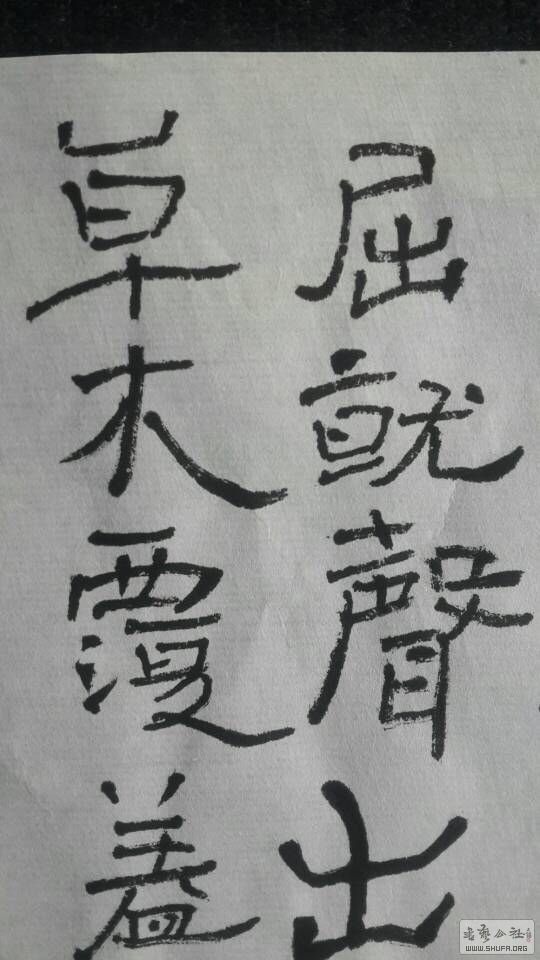 屈就聲出
草木覆蓋
书艺公社
WWW.SHUFA.ORG